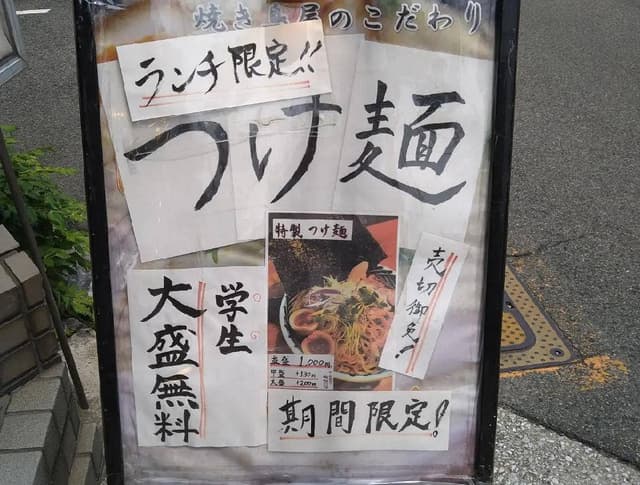 焼き鳥屋のこだわり
ランチ限定!!
つけ麺
特製つけ麺
売切御免
学生
大盛無料
並盛 1,000円
中盛 +150円
大盛 +200円
期間限定!